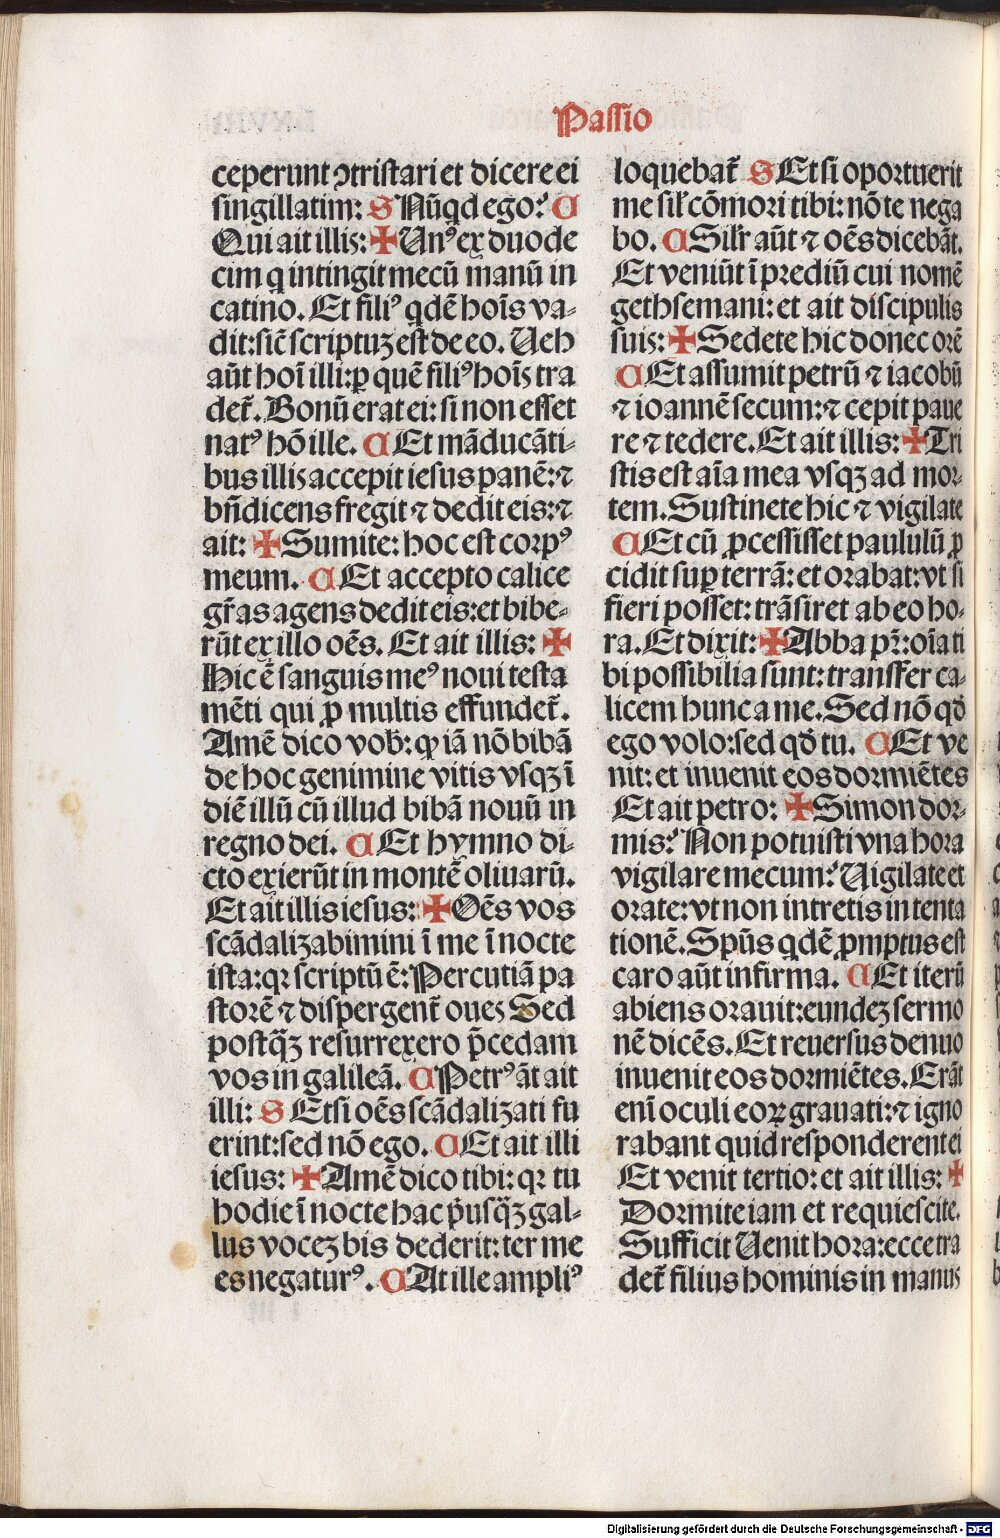 Passio
ceperunt ꝯtristari et dicere ei
singillatim: S Nūqd ego? C
Qui ait illis: ✠ Unꝰ ex duode
cim q intingit mecū manū in
catino. Et filiꝰ qdē hoīs va-
dit: sic̄ scriptuz est de eo. Ueh
aūt hoī illi: ꝑ quē filiꝰ hoīs tra
det̄. Bonū erat ei: si non esset
natꝰ hō ille. C Et māducāti-
bus illis accepit iesus panē: ⁊
bn̄dicens fregit ⁊ dedit eis: ⁊
ait: ✠ Sumite: hoc est corpꝰ
meum. C Et accepto calice
gr̄as agens dedit eis: et bibe-
rūt ex illo oēs. Et ait illis: ✠
Hic ē sanguis meꝰ noui testa
mēti qui ꝓ multis effundet̄.
Amē dico vob: ꝙ iā nō bibā
de hoc genimine vitis vsqꝫ ī
diē illū cū illud bibā nouū in
regno dei. C Et hymno di-
cto exierūt in montē oliuarū.
Et ait illis iesus: ✠ Oēs vos
scādalizabimini ī me ī nocte
ista: qꝛ scriptū ē: Percutiā pa
storē ⁊ dispergent̄ oues Sed
postq̄ꝫ resurrexero p̄cedam
vos in galileā. C Petrꝰ āt ait
illi: S Etsi oēs scādalizati fu
erint: sed nō ego. C Et ait illi
iesus: ✠ Amē dico tibi: qꝛ tu
hodie ī nocte hac pͥusq̄ꝫ gal-
lus vocez bis dederit: ter me
es negaturꝰ. C At ille ampliꝰ
loquebat̄ S Et si oportuerit
me sil̄ cōmori tibi: nō te nega
bo. C Silr̄ aūt ⁊ oēs dicebāt.
Et veniūt ī prediū cui nomē
gethsemani: et ait discipulis
suis: ✠ Sedete hic donec orē
C Et assumit petrū ⁊ iacobū
⁊ ioannē secum: ⁊ cepit paue
re ⁊ tedere. Et ait illis: ✠ Tri
stis est aīa mea vsqꝫ ad mor-
tem. Sustinete hic ⁊ vigilate
C Et cū ꝓcessisset paululū ꝓ
cidit suꝑ terrā: et orabat: vt si
fieri posset: trāsiret ab eo ho-
ra. Et dixit: ✠ Abba pr̄: oīa ti
bi possibilia sunt: transfer ca-
licem hunc a me. Sed nō qd̄
ego volo: sed qd̄ tu. C Et ve
nit: et inuenit eos dormiētes
Et ait petro: ✠ Simon dor-
mis? Non potuisti vna hora
vigilare mecum? Uigilate et
orate: vt non intretis in tenta
tionē. Spūs qdē ꝓmptus est
caro aūt infirma. C Et iterū
abiens orauit: eundez sermo
nē dicēs. Et reuersus denuo
inuenit eos dormiētes. Erāt
enī oculi eoꝝ grauati: ⁊ igno
rabant quid responderent ei
Et venit tertio: et ait illis: ✠
Dormite iam et requiescite.
Sufficit Uenit hora: ecce tra
det̄ filius hominis in manus
Digitalisierung gefördert durch die Deutsche Forschungsgemeinschaft - DFG